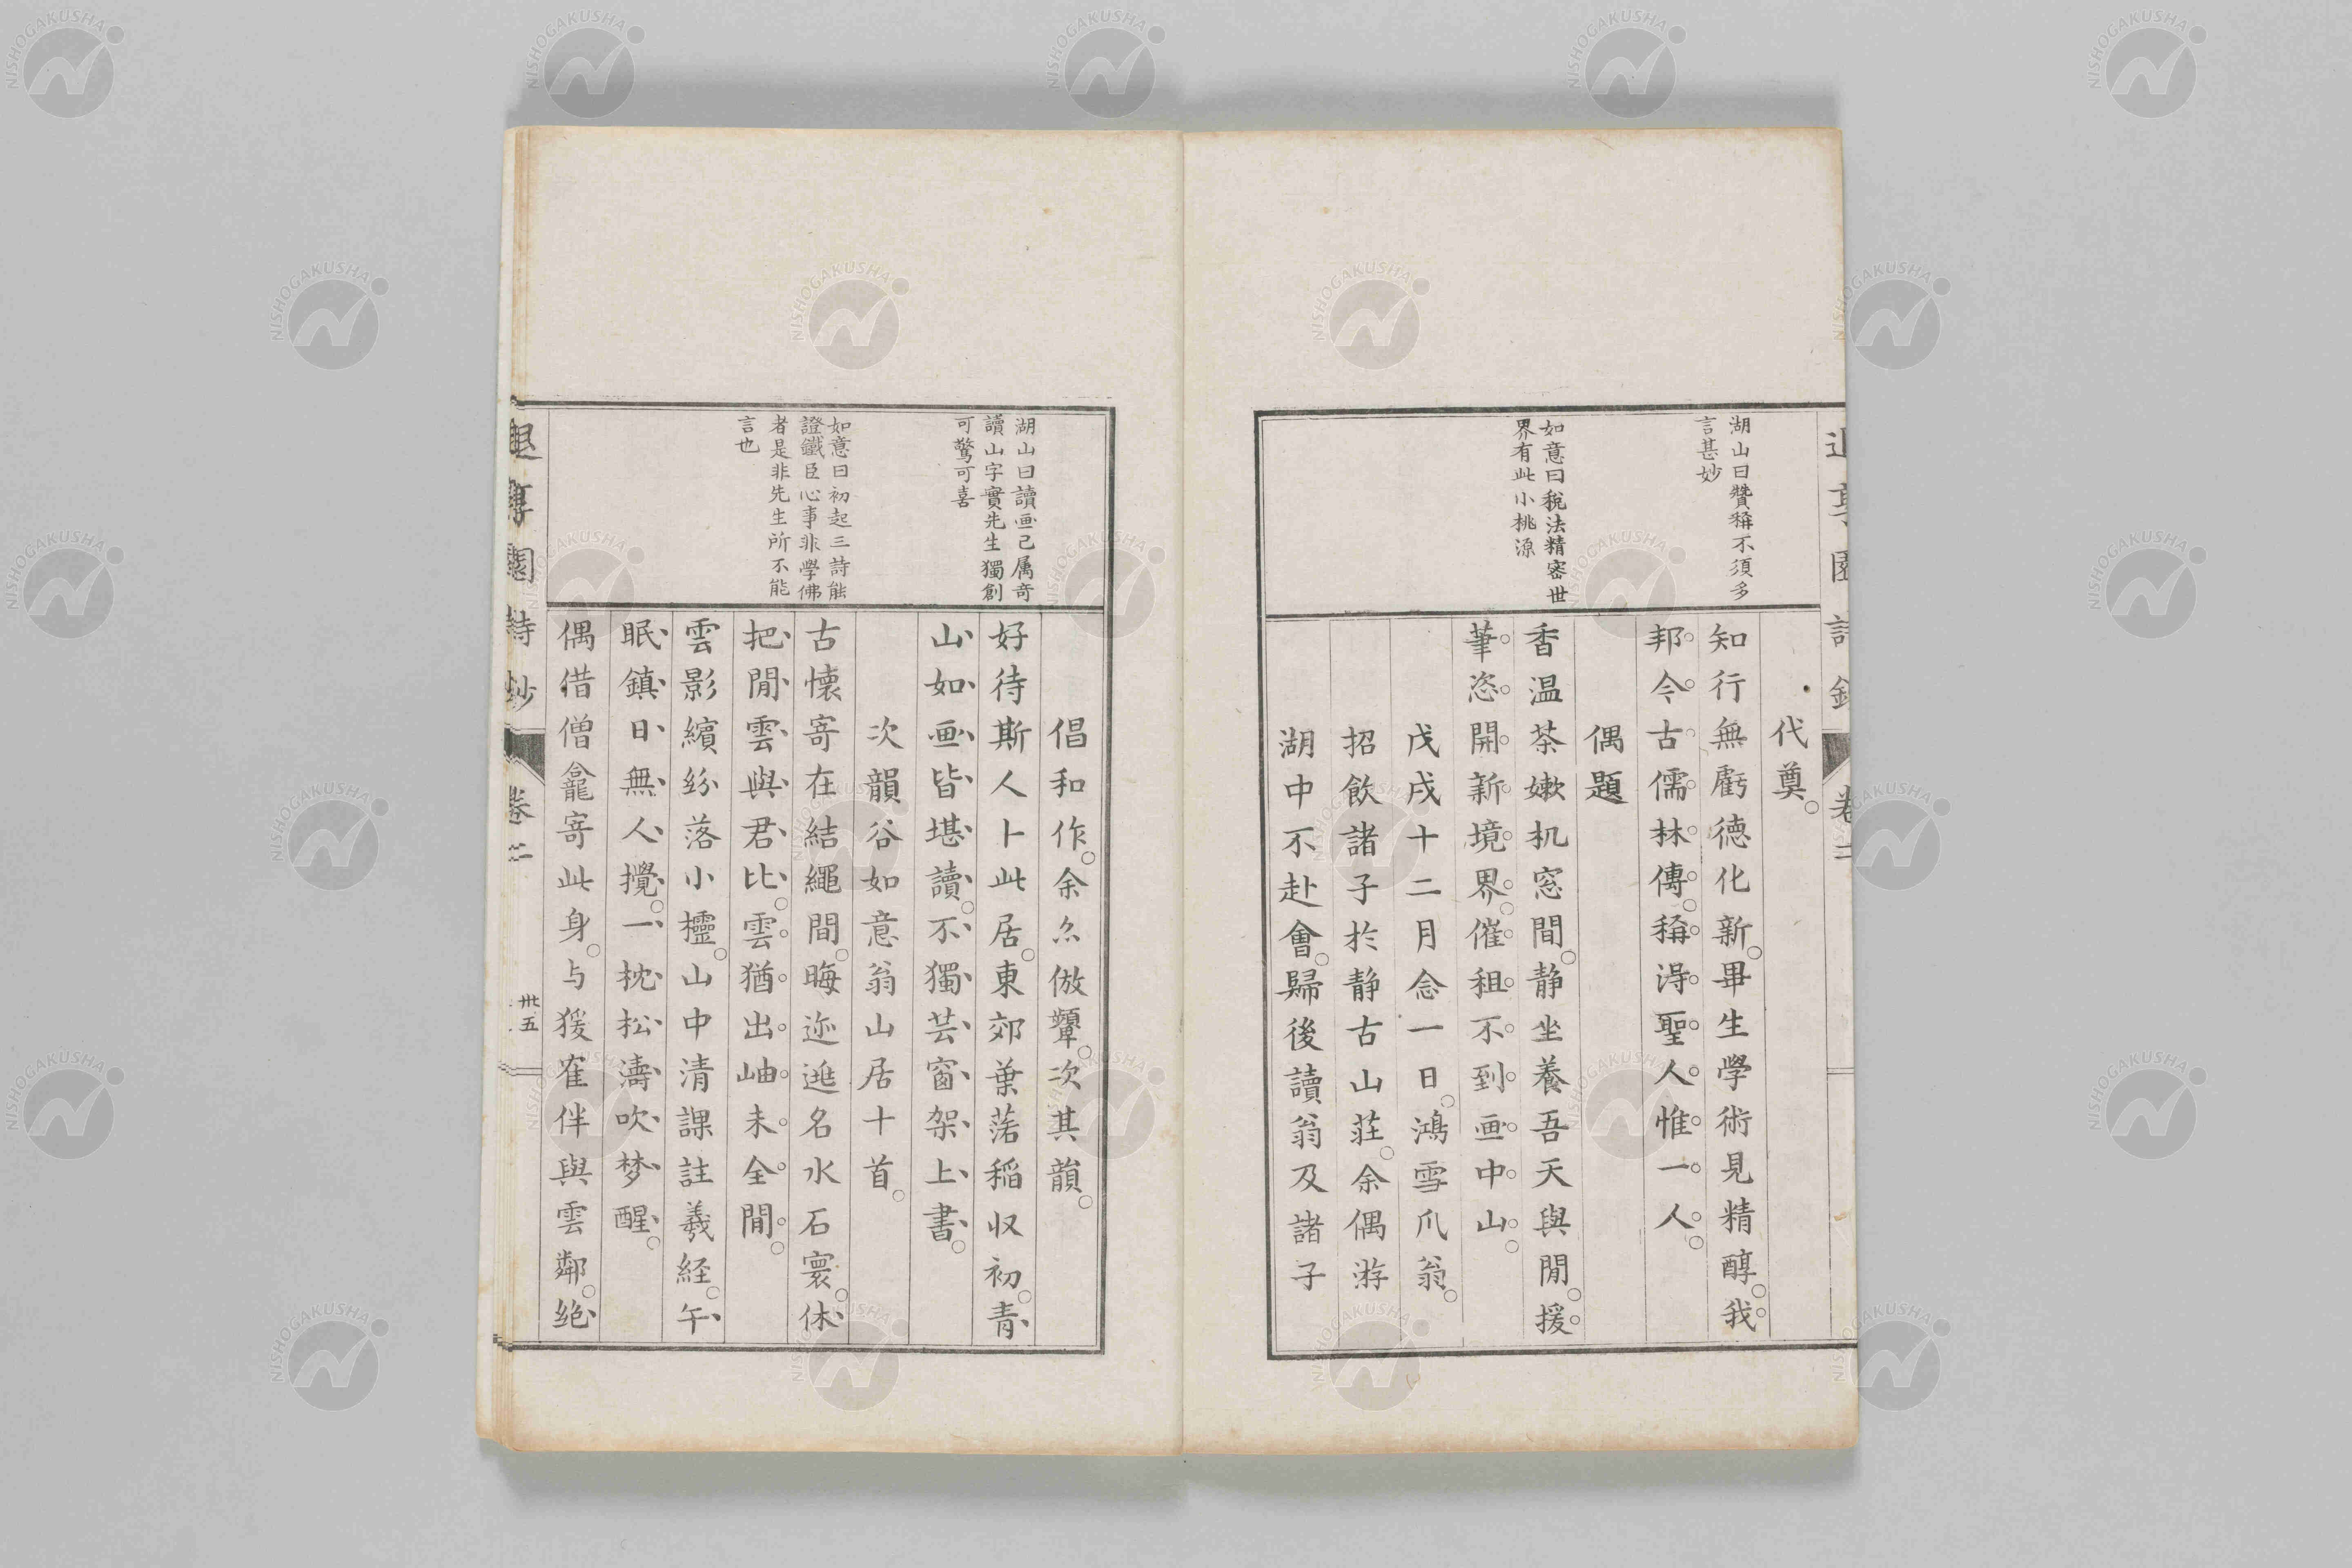 湖山曰贊稱不須多
言甚妙
如意曰稅法精密世
界有此小桃源
代奠。
知行無虧德化新。畢生學術見精醇。我
邦今古儒林傳。稱得聖人惟一人。
偶題
香温茶嫰机窓間。静坐養吾天與閒。援
筆恣開新境界。催租不到画中山。
戊戌十二月念一日。鴻雪爪翁。
招飲諸子於静古山莊。余偶游
湖中不赴會。歸後讀翁及諸子
湖山曰讀画已属奇
讀山字實先生獨創
可驚可喜
如意曰初起三詩能
證鐵臣心事非學佛
者是非先生所不能
言也
倡和作。余亦倣顰。次其韻。
好待斯人卜此居。東郊葉落稲収初。青
山如画皆堪讀。不獨芸窗架上書。
次韻谷如意翁山居十首。
古懐寄在結繩間。晦迹逃名水石寰。休
把閒雲與君比。雲猶出岫未全閒。
雲影繽紛落小欞。山中清課註羲経。午
眠鎮日無人攪。一枕松濤吹梦醒。
偶借僧龕寄此身。与猨隺伴與雲鄰。絶
園詩鈔
卷二
卅五